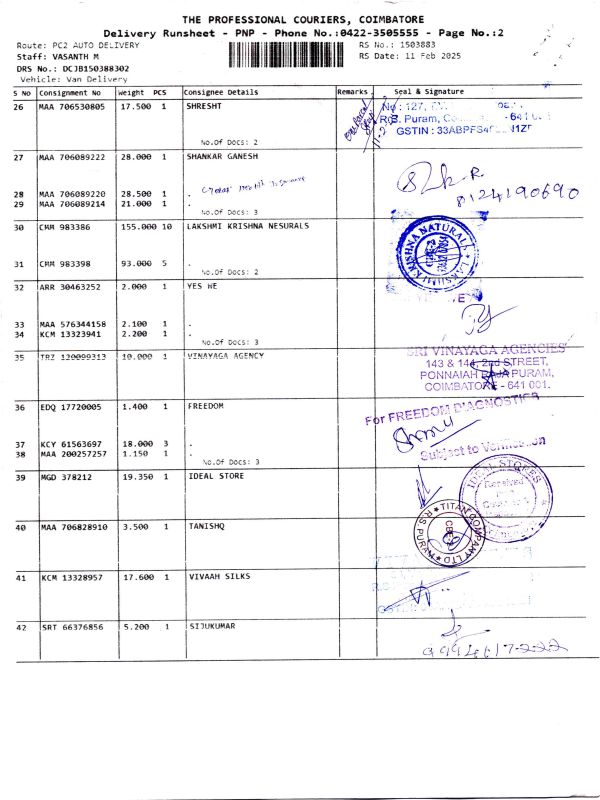 THE PROFESSIONAL COURIERS, COIMBATORE
Delivery Runsheet - PNP - Phone No.:0422-3505555 - Page No.:2
Route: PC2 AUTO DELIVERY RS No.: 1503883
Staff: VASANTH M RS Date: 11 Feb 2025
DRS No.: DCJB150388302
Vehicle: Van Delivery
S No Consignment No Weight PCS Consignee Details Remarks Seal & Signature
26 MAA 706530805 17.500 1 SHRESHT
No : 127,
R.S. Puram, - 641
GSTIN : 33ABPFS4
No.Of Docs: 2
27 MAA 706089222 28.000 1 SHANKAR GANESH
28 MAA 706089220 28.500 1 .
8124190690
29 MAA 706089214 21.000 1 .
No.Of Docs: 3
30 CMM 983386 155.000 10 LAKSHMI KRISHNA NESURALS
KRISHNA NATURAL LAKSHMI
31 CMM 983398 93.000 5 .
No.Of Docs: 2
32 ARR 30463252 2.000 1 YES WE
33 MAA 576344158 2.100 1 .
34 KCM 13323941 2.200 1 .
No.Of Docs: 3
35 TRZ 120099313 10.000 1 VINAYAGA AGENCY
SRI VINAYAGA AGENCIES
143 & 144, 2nd STREET,
PONNAIAH RAJAPURAM,
COIMBATORE - 641 001.
36 EDQ 17720005 1.400 1 FREEDOM
For FREEDOM DIAGNOSTICS
37 KCY 61563697 18.000 3 .
38 MAA 200257257 1.150 1 .
Subject to Verification
No.Of Docs: 3
39 MGD 378212 19.350 1 IDEAL STORE
IDEAL STORES
Received
40 MAA 706828910 3.500 1 TANISHQ
TITAN COMPANY LTD
R.S. PURAM
CBE-2
41 KCM 13328957 17.600 1 VIVAAH SILKS
42 SRT 66376856 5.200 1 SIJUKUMAR
9994617222